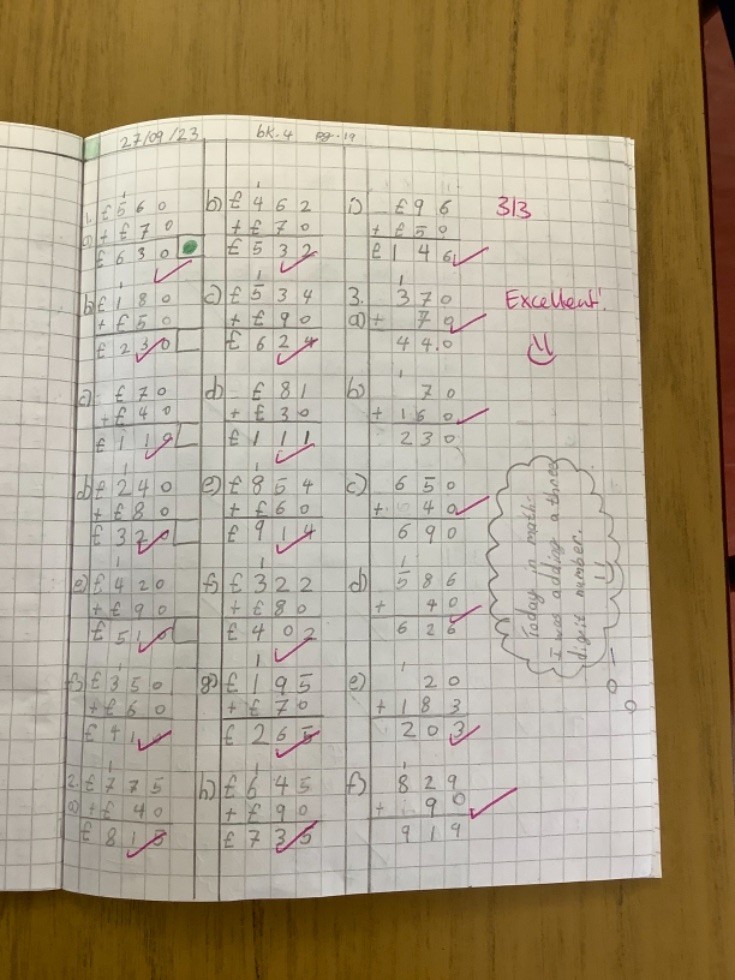 27/09/23 bk.4 pg.19
1
1. £560
a) + £70
£630
1
b) £180
+ £50
£230
c) £70
+ £40
£110
1
d) £240
+ £80
£320
1
e) £420
+ £90
£510
1
f) £350
+ £60
£410
1
2. £775
a) + £40
£815
1
b) £462
+ £70
£532
1
c) £534
+ £90
£624
d) £81
+ £30
£111
1
e) £854
+ £60
£914
1
f) £322
+ £80
£402
1
g) £195
+ £70
£265
1
h) £645
+ £90
£735
i) £96
+ £50
£146
1
3. 370
a) + 70
44.0
1
b) 70
+ 160
230
c) 650
+ 40
690
1
d) 586
+ 40
626
1
e) 20
+ 183
203
1
f) 829
+ 90
919
313
Excellent!
Today in math-
I was adding a three
digit number.